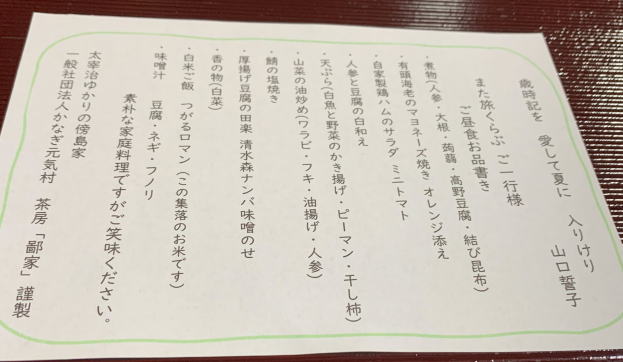 歳時記を 愛して夏に 入りけり
山口誓子
また旅くらぶ ご一行様
ご昼食お品書き
・煮物(人参・大根・蒟蒻・高野豆腐・結び昆布)
・有頭海老のマヨネーズ焼き オレンジ添え
・自家製鶏ハムのサラダ ミニトマト
・人参と豆腐の白和え
・天ぷら(白魚と野菜のかき揚げ・ピーマン・干し柿)
・山菜の油炒め(ワラビ・フキ・油揚げ・人参)
・鯖の塩焼き
・厚揚げ豆腐の田楽 清水森ナンバ味噌のせ
・香の物(白菜)
・白米ご飯 つがるロマン(この集落のお米です)
・味噌汁 豆腐・ネギ・フノリ
素朴な家庭料理ですがご笑味ください。
太宰治ゆかりの傍島家
一般社団法人かなぎ元気村 茶房「鄙家」謹製